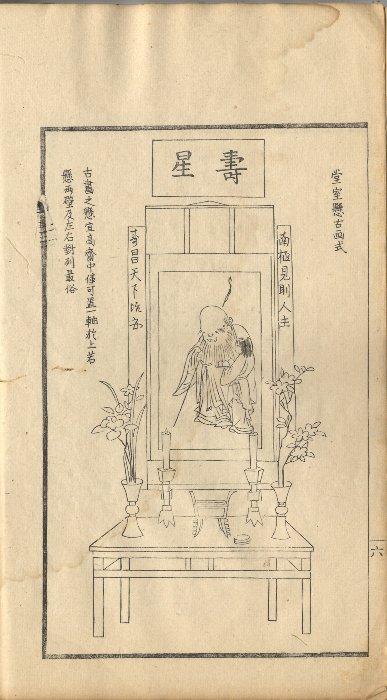 堂室懸古画式
壽星
南極見則人主
壽昌天下
古畫之懸宜高齋中僅可置一軸於上若
懸兩壁及左右對列最俗
六